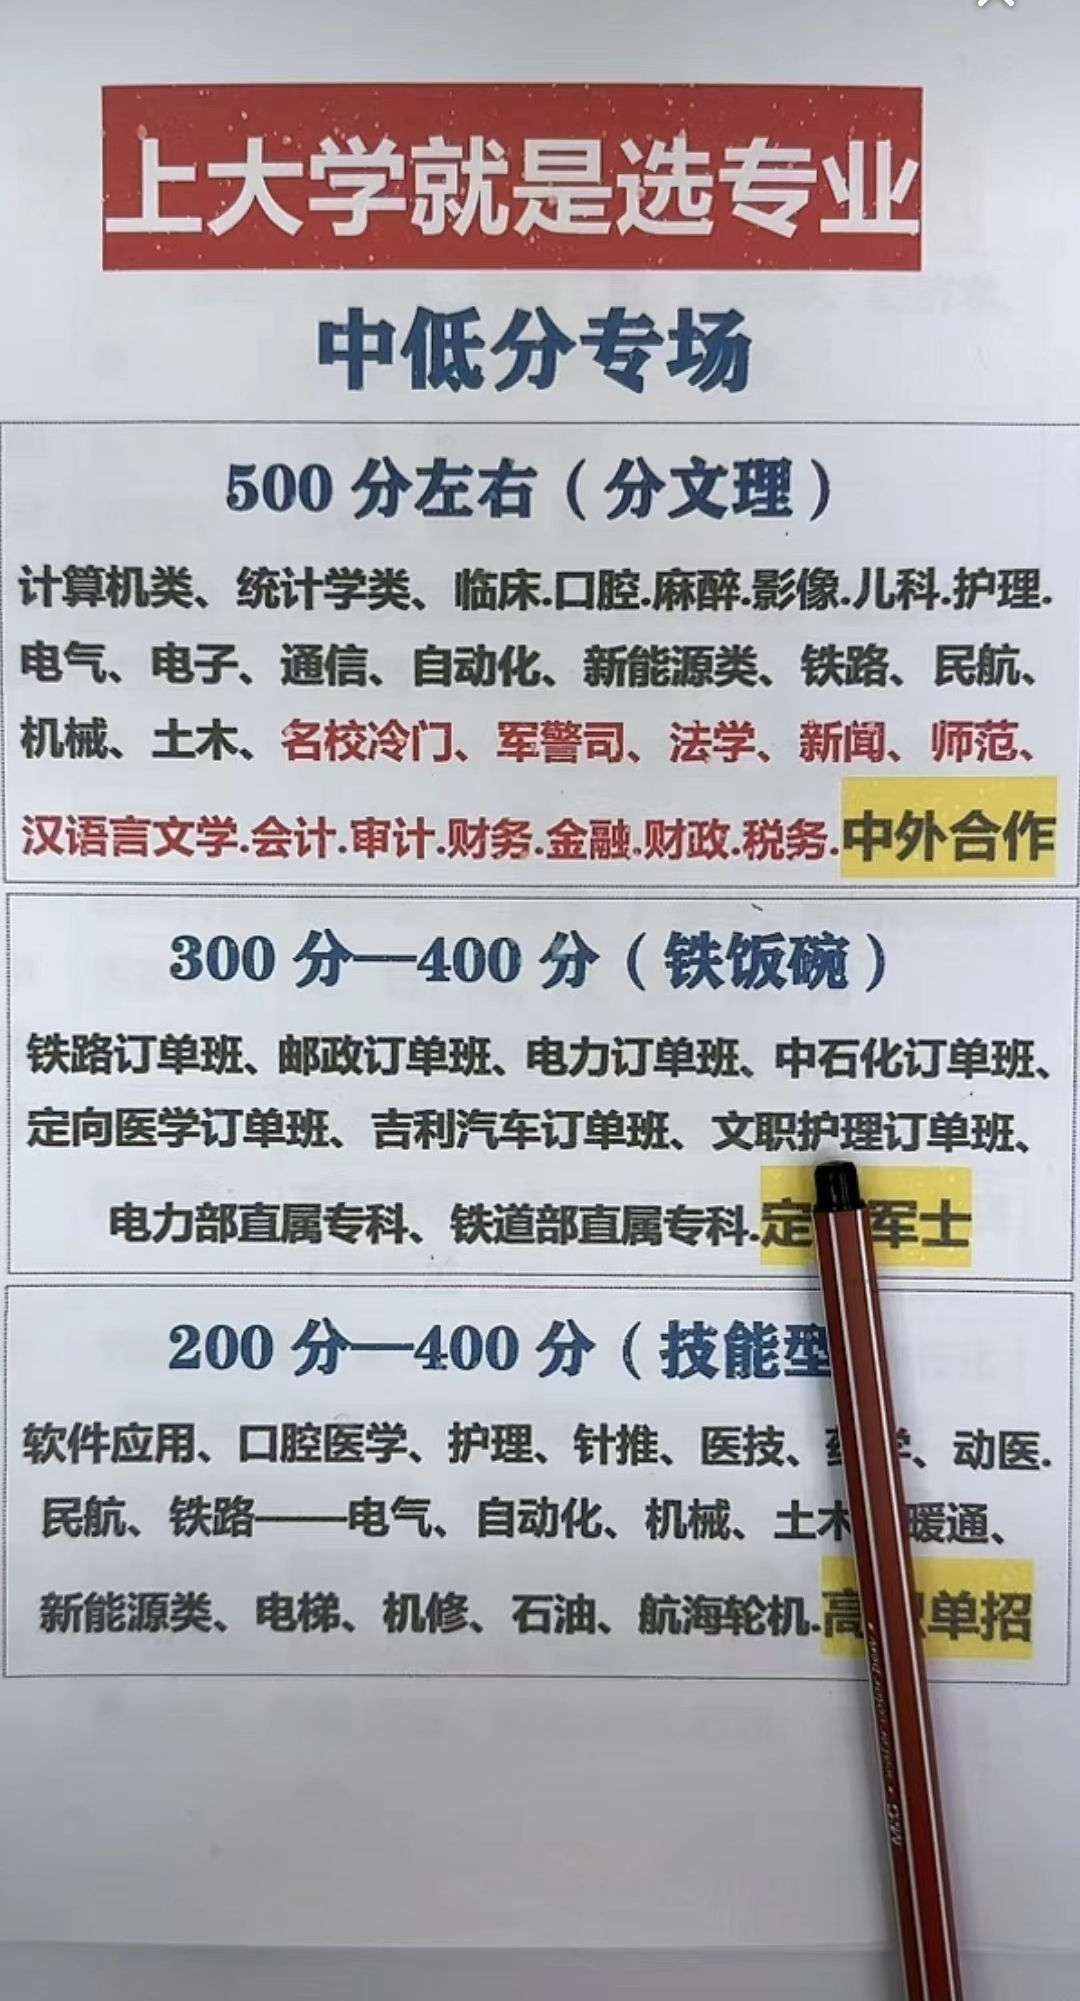 上大学就是选专业
中低分专场
500 分左右（分文理）
计算机类、统计学类、临床.口腔.麻醉.影像.儿科.护理.
电气、电子、通信、自动化、新能源类、铁路、民航、
机械、土木、名校冷门、军警司、法学、新闻、师范、
汉语言文学.会计.审计.财务.金融.财政.税务.中外合作
300 分—400 分（铁饭碗）
铁路订单班、邮政订单班、电力订单班、中石化订单班、
定向医学订单班、吉利汽车订单班、文职护理订单班、
电力部直属专科、铁道部直属专科.定 军士
200 分—400 分（技能型
软件应用、口腔医学、护理、针推、医技、 、动医.
民航、铁路——电气、自动化、机械、土木 暖通、
新能源类、电梯、机修、石油、航海轮机.高 单招
M&G